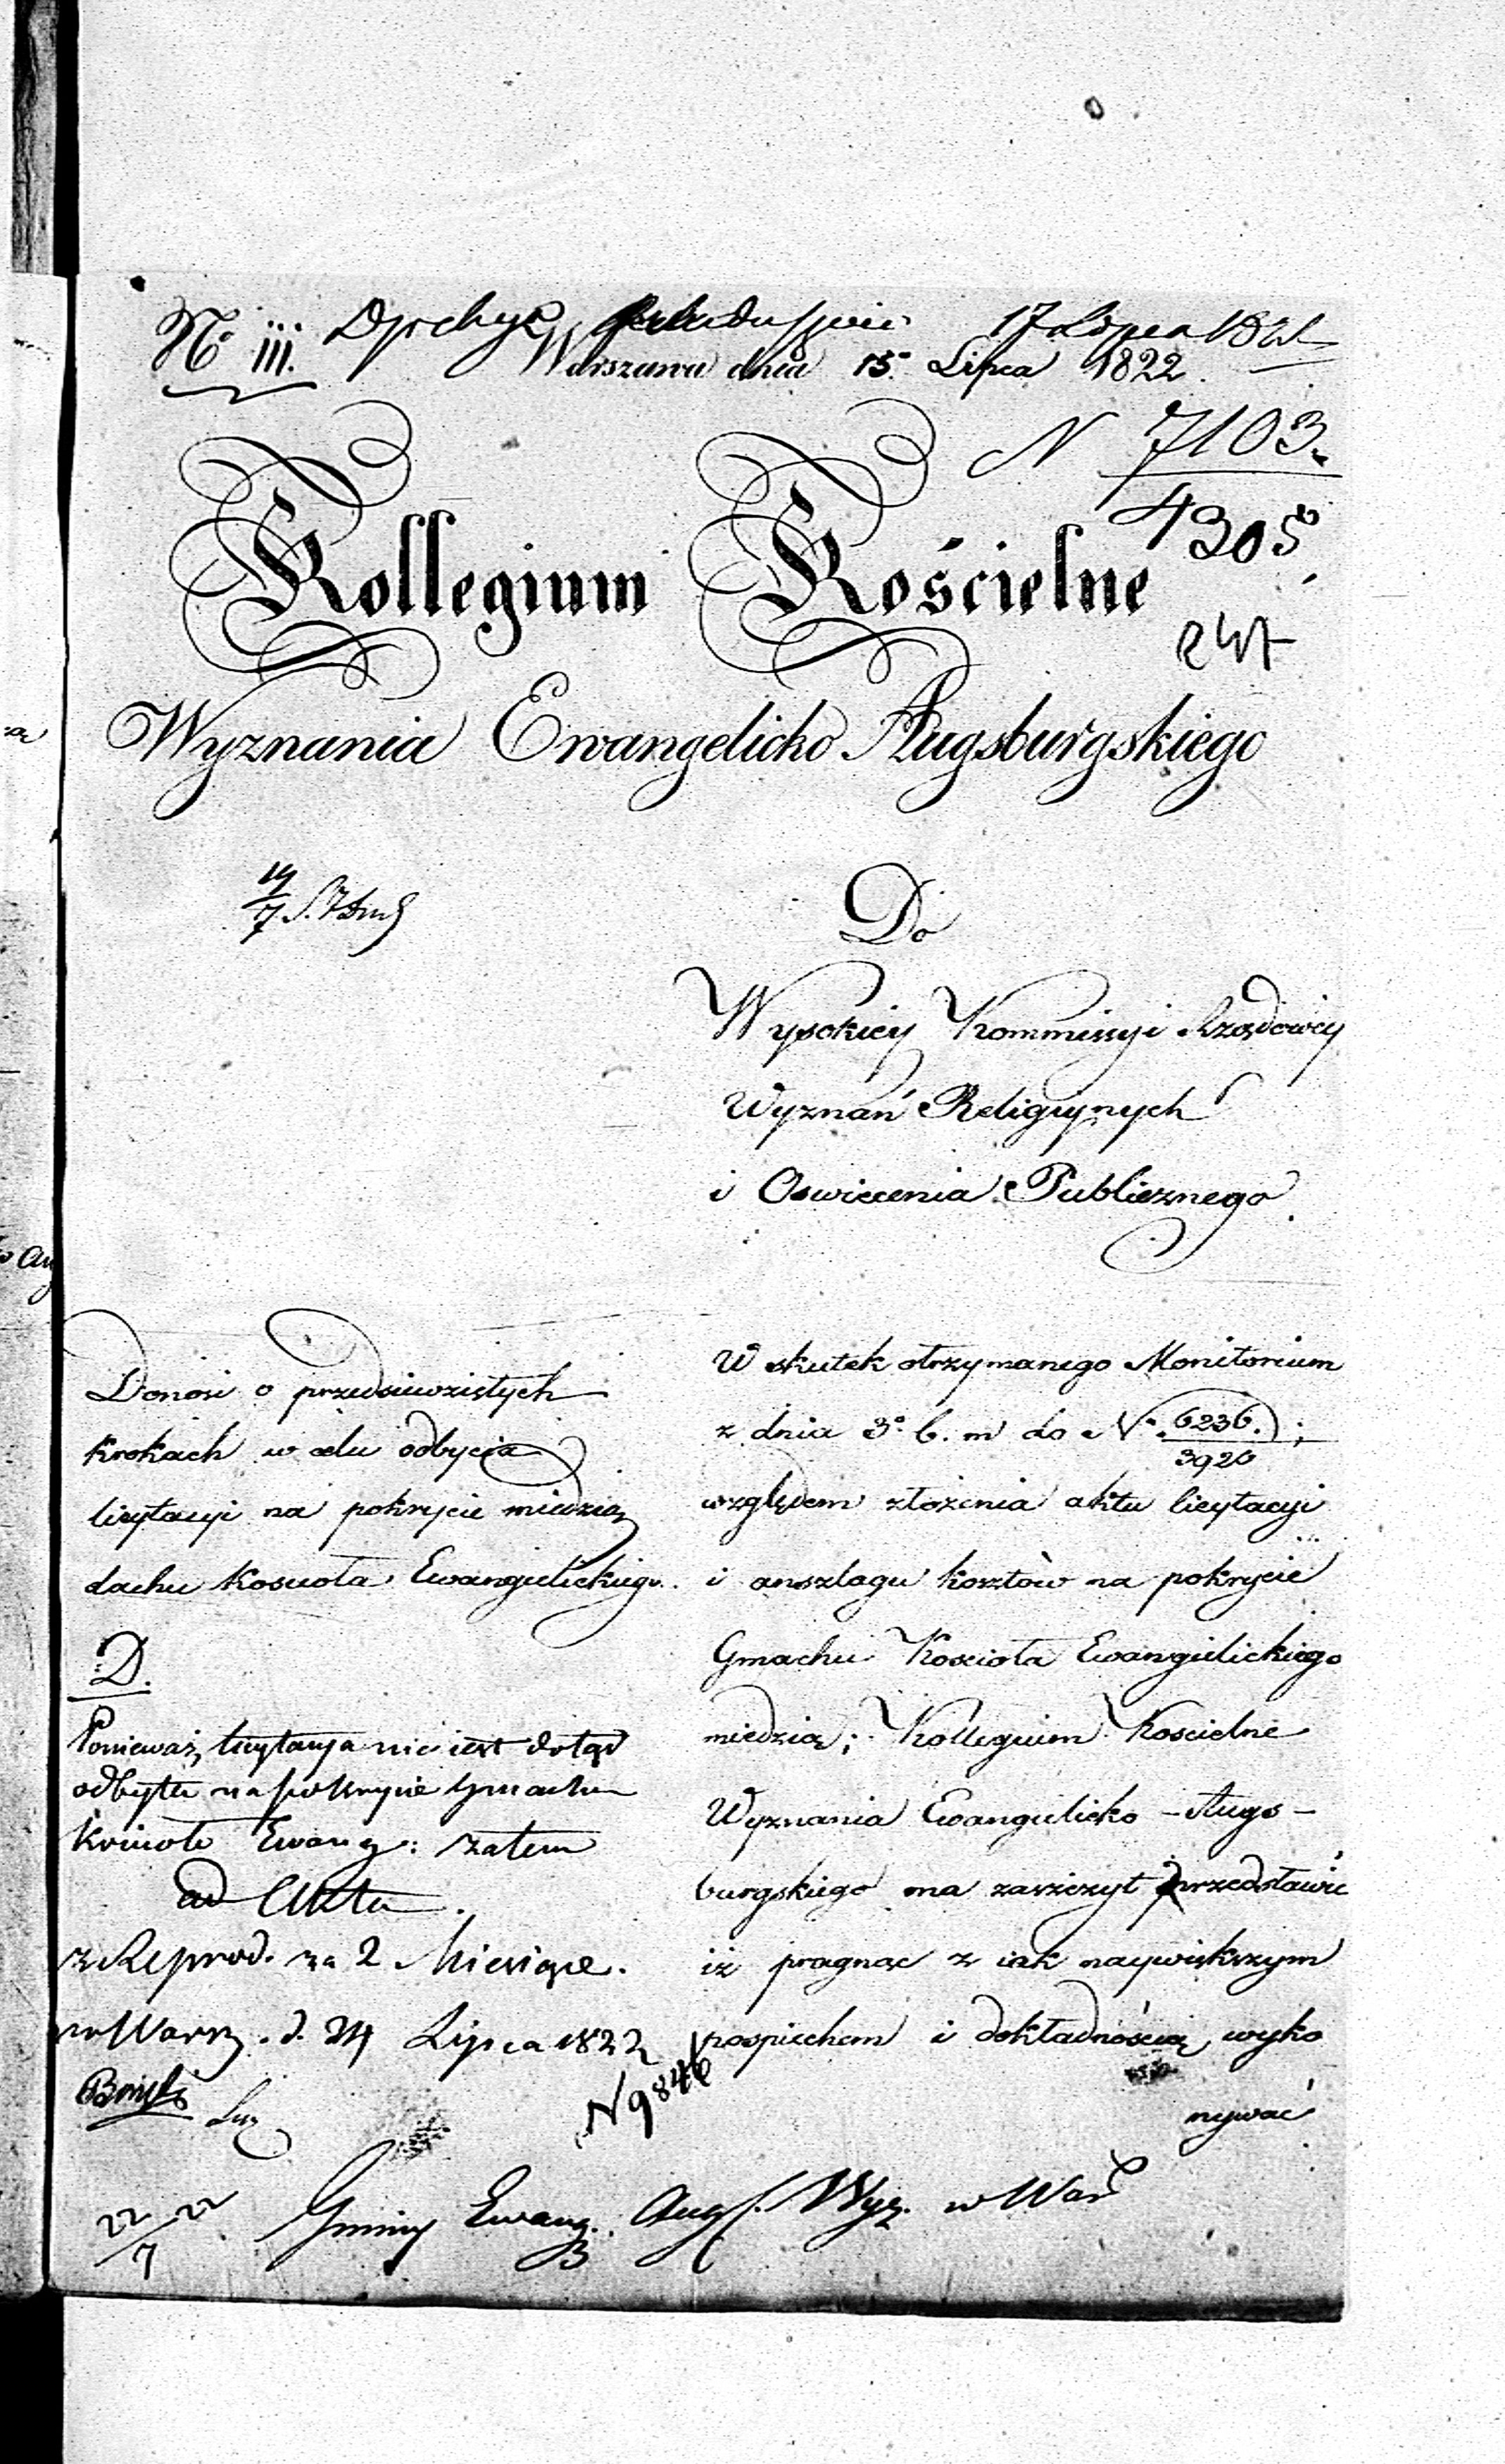 No 111.
17 Lipca 1822
Warszawa dnia 15. Lipca 1822.
N 7103.
4305
Kollegium Kościelne
Wyznania Ewangelicko Augsburgskiego
Do
Wysokiey Kommissyi Rządowey
Wyznań Religijnych
i Oswiecenia Publicznego.
Donosi o przedsiewziętych
krokach w celu odbycia
licytacyi na pokrycie miedzią
dachu Koscioła Ewangielickiego.
D.
Ponieważ licytacya nie iest dotąd
odbyta na pokrycie Gmachu
Kościoła Ewang: zatem
ad Acta.
z Reprod. za 2 Miesiące.
w Warsz. d. 24 Lipca 1822
N 9846
W skutek otrzymanego Monitorium
z dnia 3o b. m do No. 6236./3920 ;
względem złożenia aktu licytacyi
i anszlagu kosztów na pokrycie
Gmachu Kościoła Ewangielickiego
miedzią; Kollegium Kościelne
Wyznania Ewangielicko - Augs-
burgskiego ma zaszczyt przedstawić
iż pragnąc z iak naywiększym
pospiechem i dokładnością wyko
nywać
22/7 22
Gminy Ewang. Augs. Wyz. w War